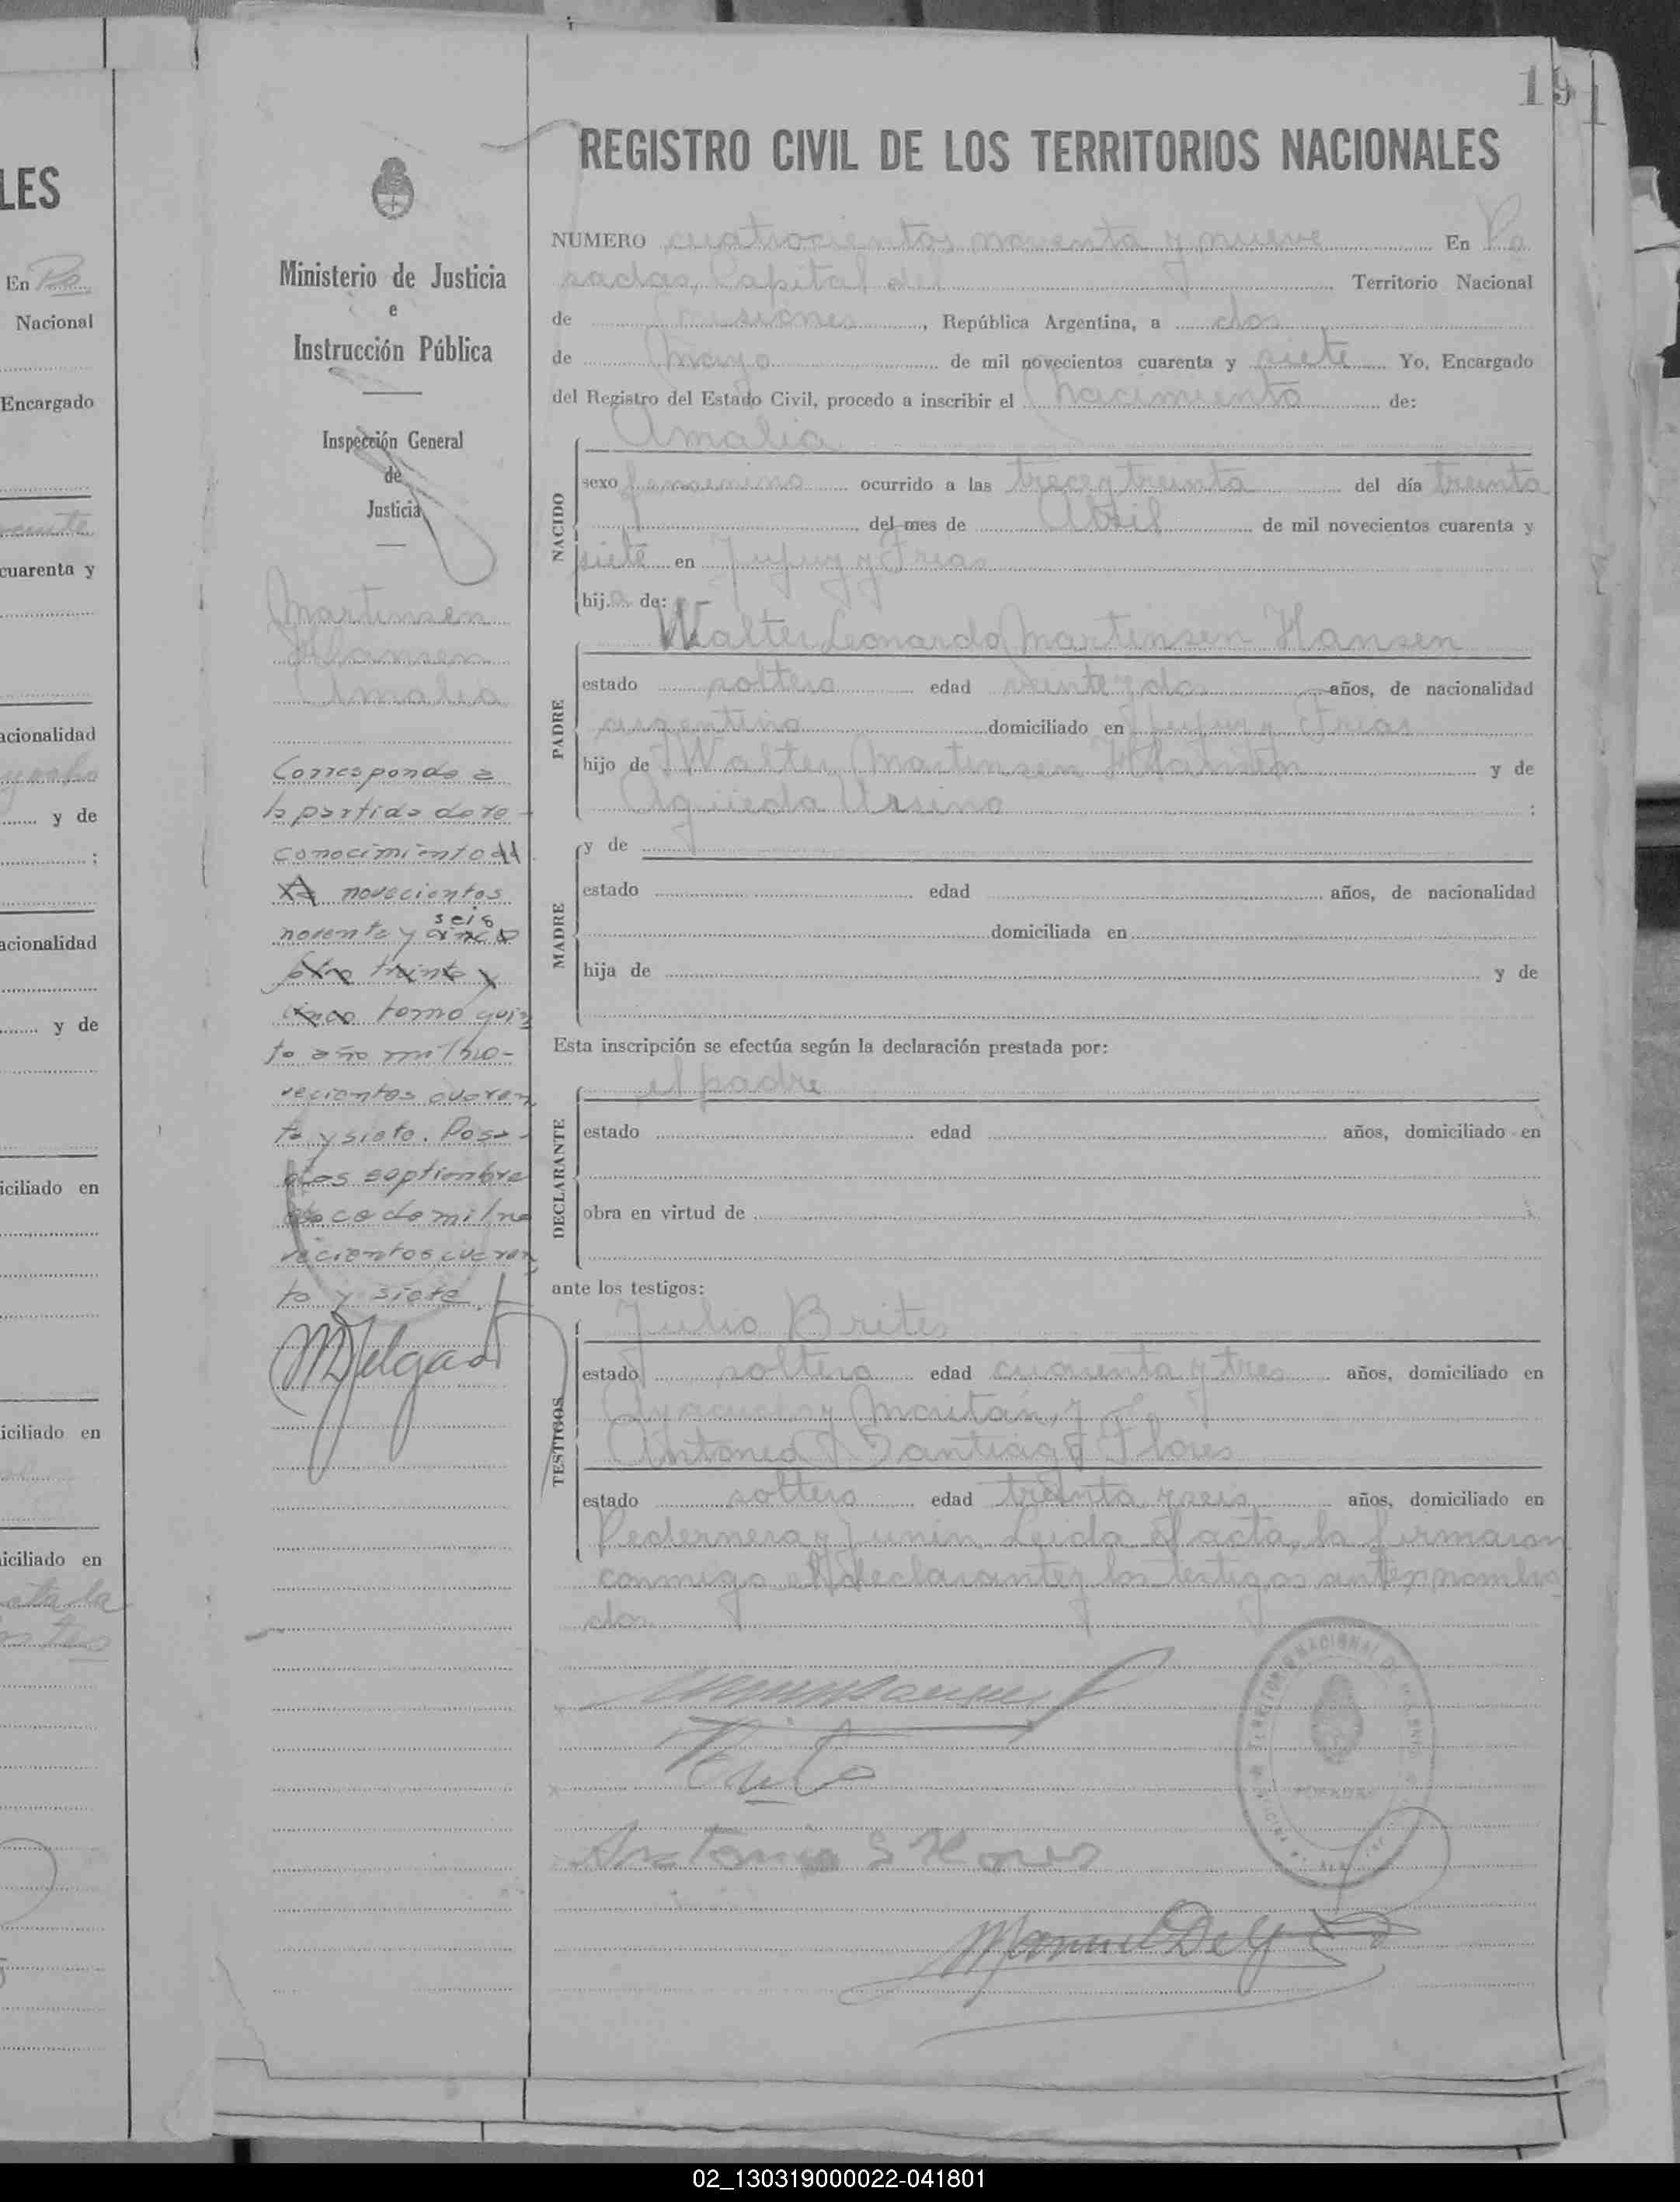 LES
En Po
Nacional
Encargado
cuarenta y
acionalidad
y de
;
acionalidad
y de
iciliado en
iciliado en
iciliado en
191
REGISTRO CIVIL DE LOS TERRITORIOS NACIONALES
Ministerio de Justicia
e
Instrucción Pública
Inspección General
de
Justicia
Martinsen
Hansen
Amalia
Corresponde a
la partida de re-
conocimiento
novecientos
seis
noventa y cinco
treinta y
cinco tomo quin
to año mil no-
vecientos cuaren
ta y siete. Posa-
das septiembre
de mil no
vecientos cuaren
ta y siete.
MDelgado
NUMERO cuatrocientos noventa y nueve En Po
sadas, Capital del Territorio Nacional
de Misiones, República Argentina, a dos
de Mayo de mil novecientos cuarenta y siete Yo, Encargado
del Registro del Estado Civil, procedo a inscribir el nacimiento de:
NACIDO
Amalia
sexo femenino ocurrido a las trece y treinta del día treinta
del mes de Abril de mil novecientos cuarenta y
siete en Jujuy y Frias
hija de:
PADRE
Walter Leonardo Martinsen Hansen
estado soltero edad veinte y dos años, de nacionalidad
argentino domiciliado en Jujuy y Frias
hijo de Walter Martinsen Hansen y de
Agueda Ursino ;
MADRE
y de
estado edad años, de nacionalidad
domiciliada en
hija de y de
Esta inscripción se efectúa según la declaración prestada por:
DECLARANTE
el padre
estado edad años, domiciliado en
obra en virtud de
ante los testigos:
TESTIGOS
Julio Brites
estado soltero edad cuarenta y tres años, domiciliado en
Ayacucho y Moritán, y
Antonio Santiago Flores
estado soltero edad treinta y seis años, domiciliado en
Pedernera y Junin. Leida el acta, la firmaron
conmigo el declarante y los testigos antes nombra
dos
Antonio S Flores
TERRITORIO NACIONAL DE MISIONES
POSADAS
Manuel Delgado
02_130319000022-041801